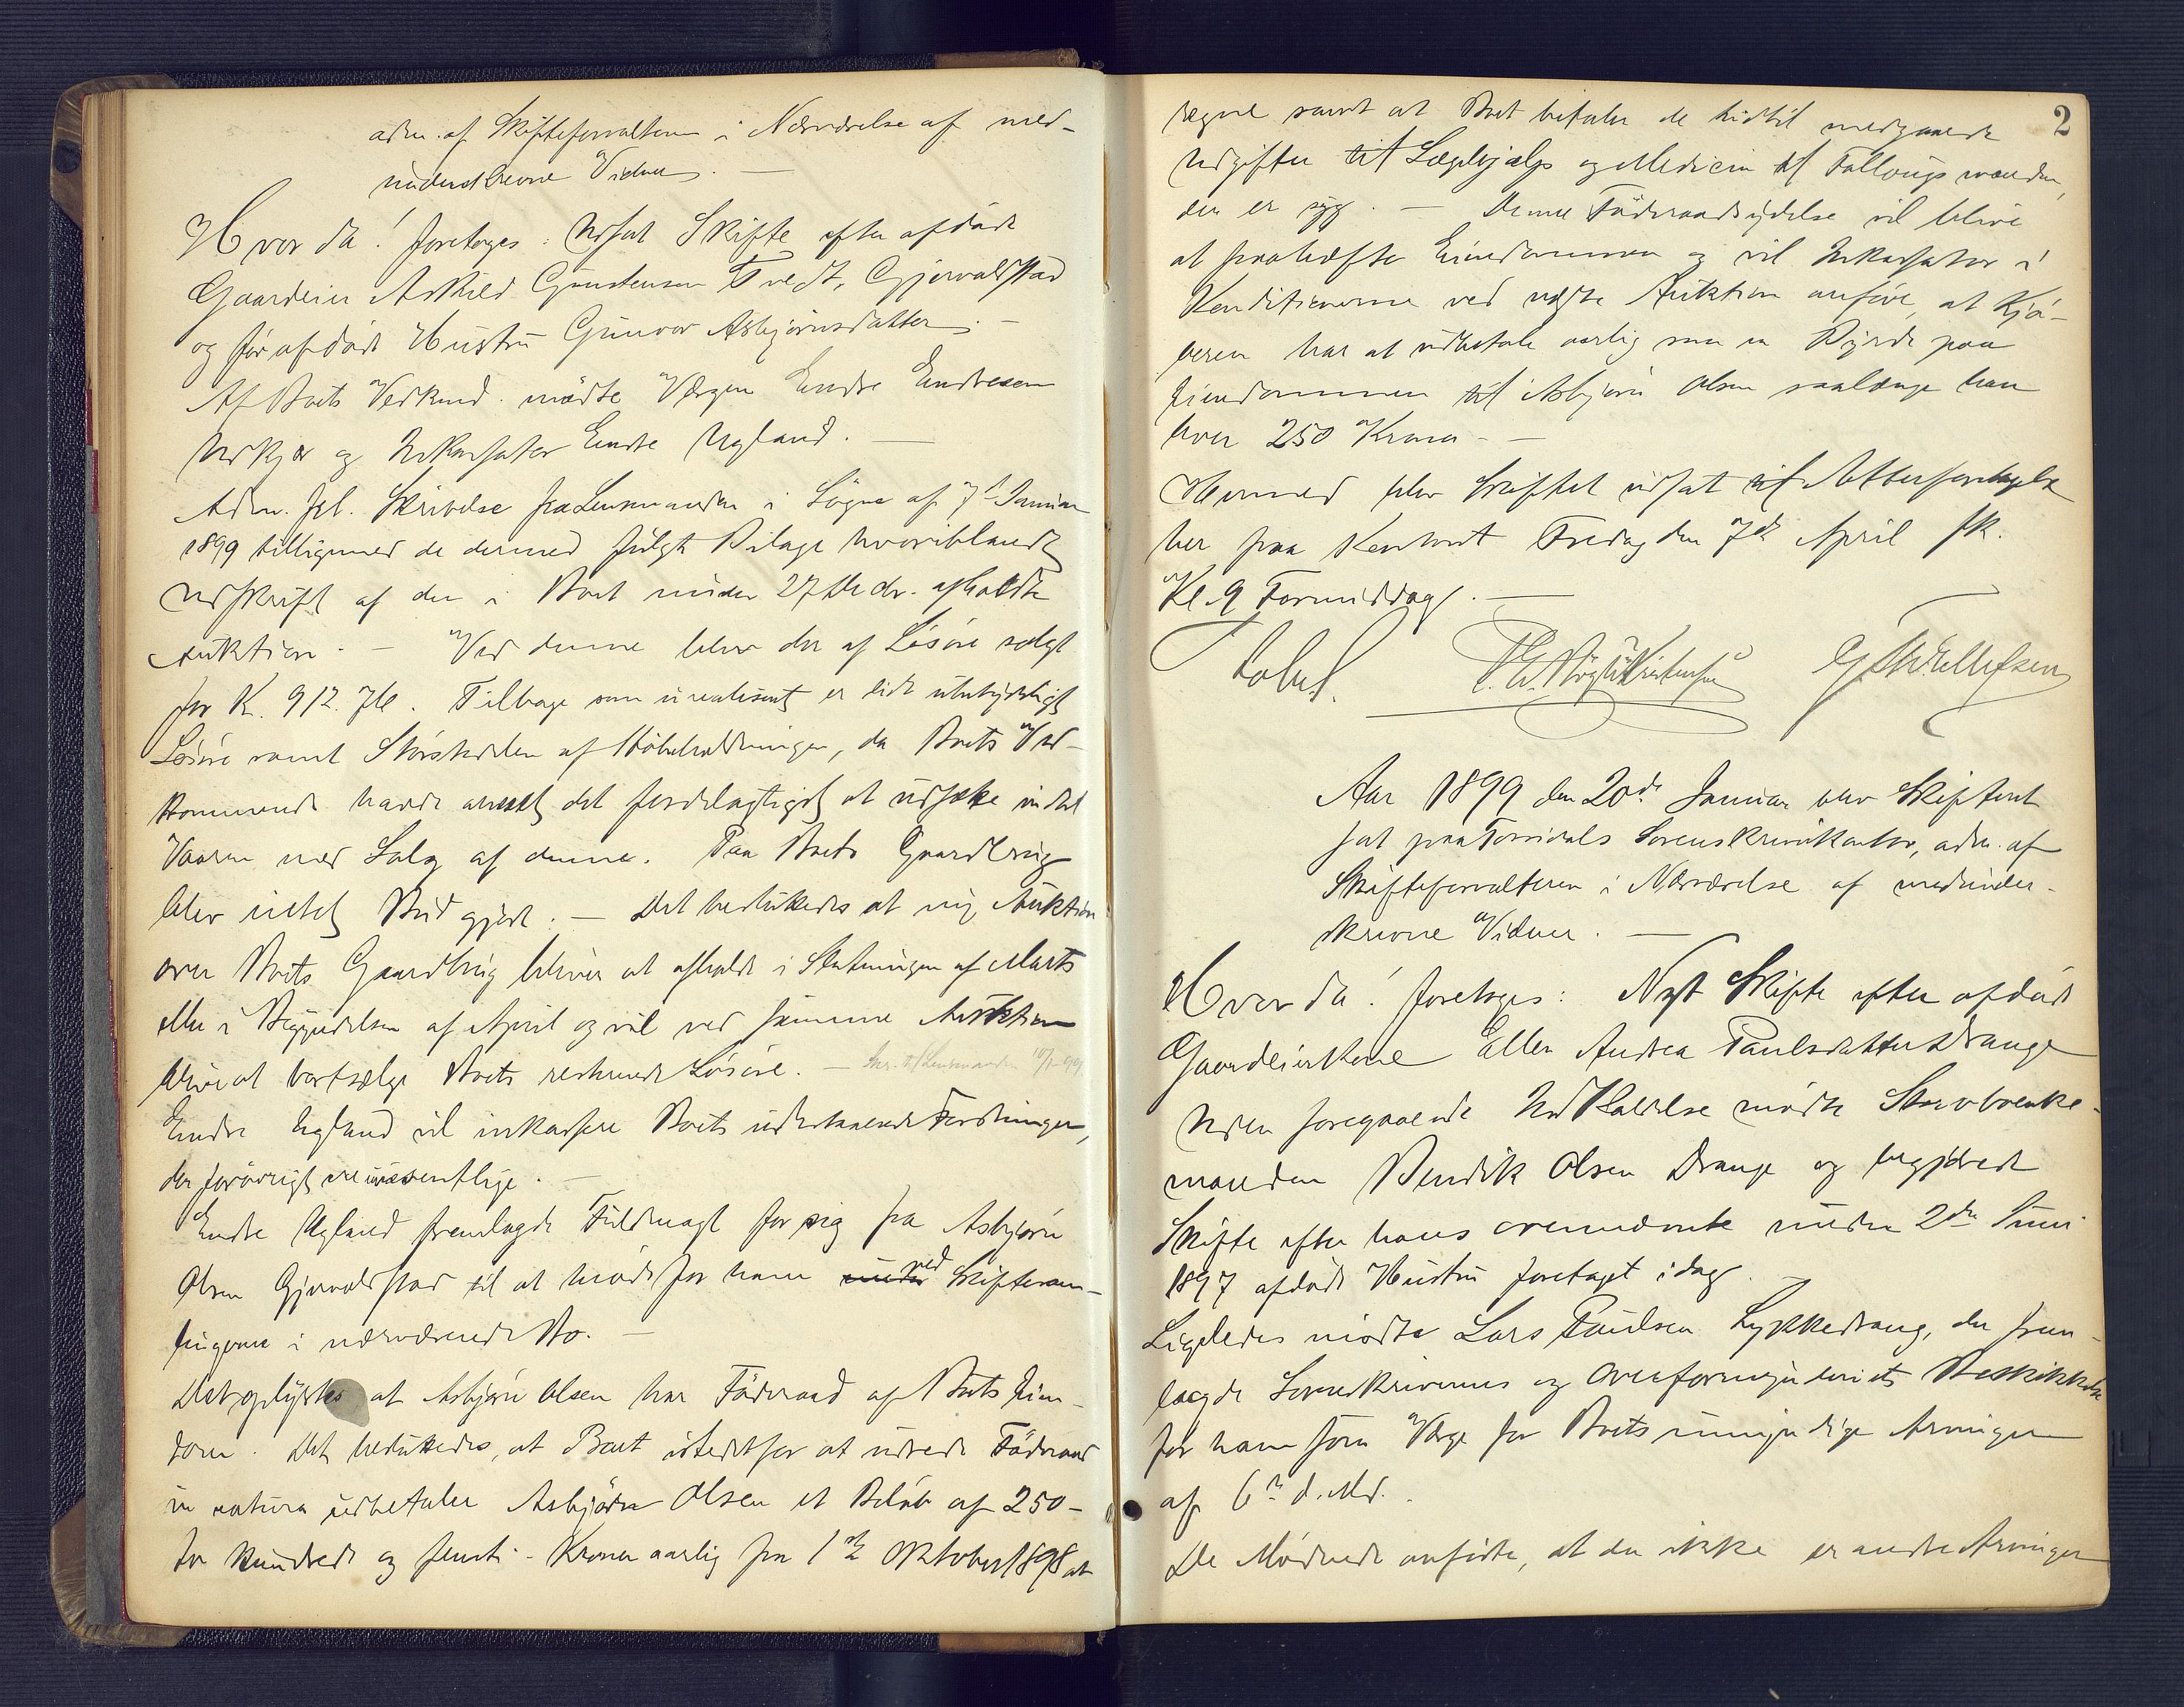 adm. af Skifteforvalteren i Nærværelse af med-
underskrevne Vidner. —
Hvorda! foretoges: Udsat Skifte efter afdøde
Gaardeier Askild Gundersen Tvedt, Gjervoldstad
og før afdøde Hustru Gunvor Asbjørnsdatter. —
Af Boets Vedkmd. mødte Værgen Endre Endresen
Udkjær og Inkassator Endre Ugland. —
Adm. frl. Skrivelse fra Lensmanden i Søgne af 7de Januar
1899 tilligemed de dermed fulgte Bilage hvoriblandt
Udskrift af den i Boet under 27 Decbr. afholdte
Auktion. — Ved denne blev der af Løsøre solgt
for K. 912.76. Tilbage som urealiseret er lidt ubetydeligt
Løsøre samt Størstedelen af Høbeholdningen, da Boets Ved-
kommende havde anseet det fordelagtigst at udsætte indtil
Vaaren med Salg af denne. Paa Boets Gaardbrug
blev intet Bud gjort. — Det besluttedes at ny Auktion
over Boets Gaardbrug bliver at afholde i Slutningen af Marts
eller i Begyndelsen af April og vil ved samme Auktion
blive at bortsælge Boets resterende Løsøre. — Skr. til Lensmanden 10/1-99
Endre Ugland vil inkassere Boets udestaaende Fordringer,
der forøvrigt ere uvæsentlige. —
Endre Ugland fremlagde Fuldmagt for sig fra Asbjørn
Olsen Gjervoldstad til at møde for ham under ved Skiftesam-
lingerne i nærværende Bo. —
Det oplystes at Asbjørn Olsen har Føderaad af Boets Eien-
dom. Det besluttedes, at Boet istedetfor at udrede Føderaad
in natura udbetaler Asbjørn Olsen et Beløb af 250 -
to hundrede og femti - Kroner aarlig fra 1ste Oktober 1898 at
regne samt at Boet betaler de hidtil medgaaede
Udgifter til Lægehjælp og Medicin til Follougsmanden,
der er syg. — Denne Føderaadsydelse vil blive
at paahefte Eiendommen og vil Inkassator i
Konditionerne ved næste Auktion anføre, at Kjø-
beren har at udbetale aarlig som en Byrde paa
Eiendommen til Asbjørn Olsen saalænge han
lever 250 Kroner. —
Hermed blev Skiftet udsat til Atterforetagelse
her paa Kontoret Fredag den 7de April fk.
Kl. 9 Formiddag. —
2
Aar 1899 den 20de Januar blev Skifteret
sat paa Torridals Sorenskriverkontor, adm. af
Skifteforvalteren i Nærværelse af medunder-
skrevne Vidner. —
Hvorda! foretoges: Nyt Skifte efter afdøde
Gaardeierkone Ellen Andrea Paulsdatter Drange
Uden foregaaende Indkaldelse mødte Stervboenke-
manden Bendik Olsen Drange og begjærede
Skifte efter hans ovennævnte under 2den Juni
1897 afdøde Hustru foretaget idag. —
Ligeledes mødte Lars Paulsen Lykkedrang, der frem-
lagde Sorenskriverens og Overformynderiets Beskikkelse
for ham som Værge for Boets umyndige Arvinger
af 6te d. Md.
De Mødende anførte, at der ikke er andre Arvinger